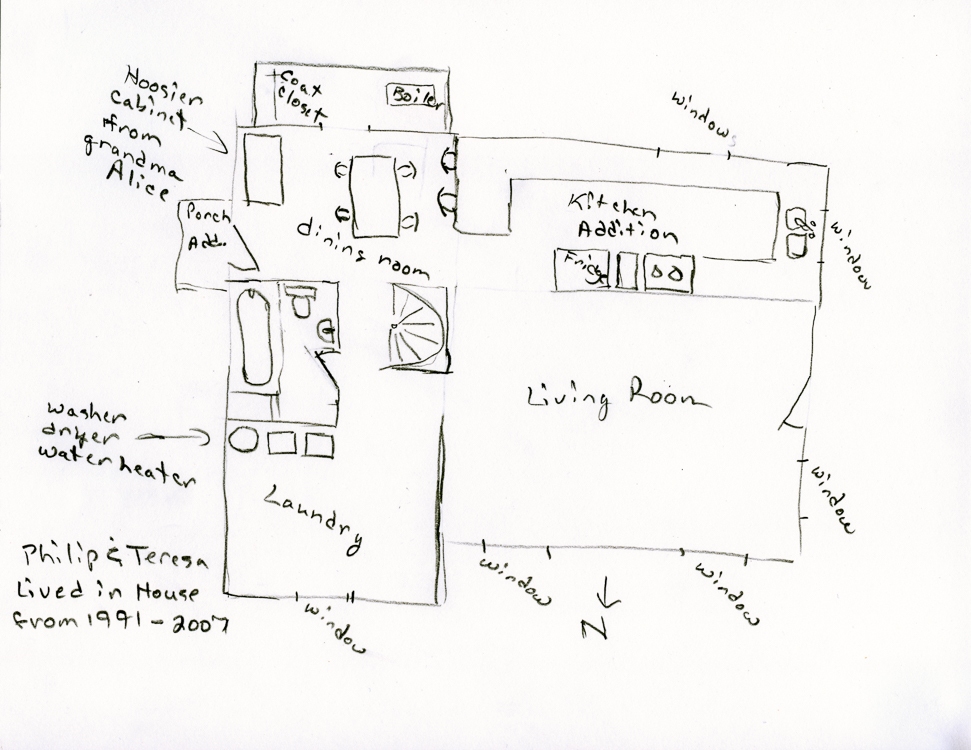 Hoosier
Cabinet
from
grandma
Alice
Coat
Closet
Boiler
windows
Porch
Add..
dining room
Kitchen
Addition
Fridge
window
Living Room
washer
dryer
water heater
Laundry
window
window
window
window
N
Philip & Teresa
Lived in House
from 1991 - 2007